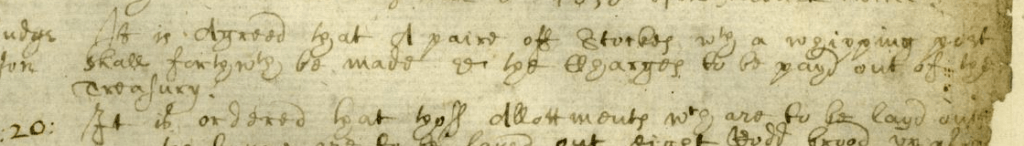 It is Agreed that A paire off Stockes wth a whipping post
shall forthwth be made & the Charges to be payd out of the
Treasury.
:20: It is ordered that thos Allottments wch are to be layd out
are to be layed out eight Rodd broad